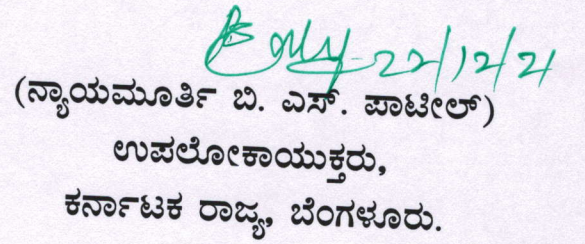 22/12/21
(ನ್ಯಾಯಮೂರ್ತಿ ಬಿ. ಎಸ್. ಪಾಟೀಲ್)
ಉಪಲೋಕಾಯುಕ್ತರು,
ಕರ್ನಾಟಕ ರಾಜ್ಯ, ಬೆಂಗಳೂರು.